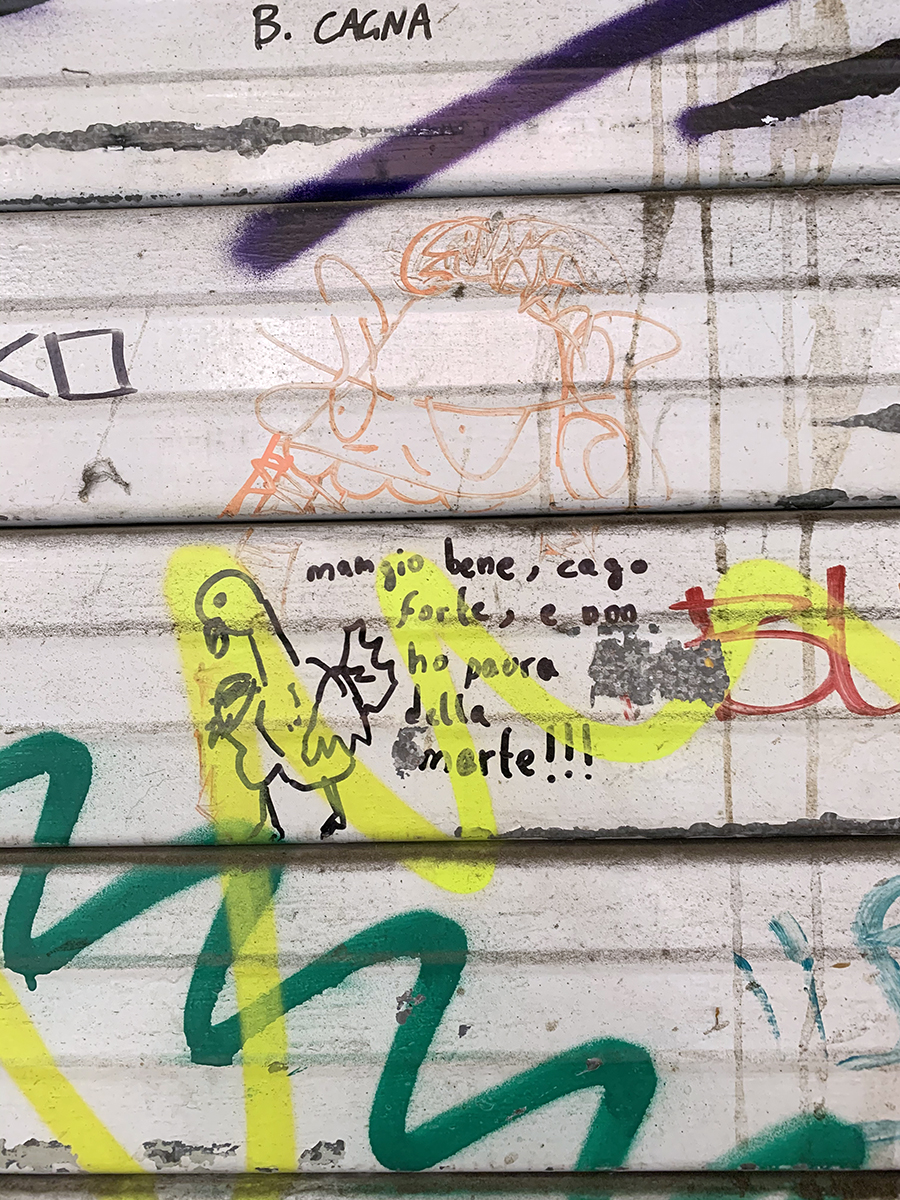 B. CAGNA
mangio bene, cago
forte, e non
ho paura
della
morte!!!